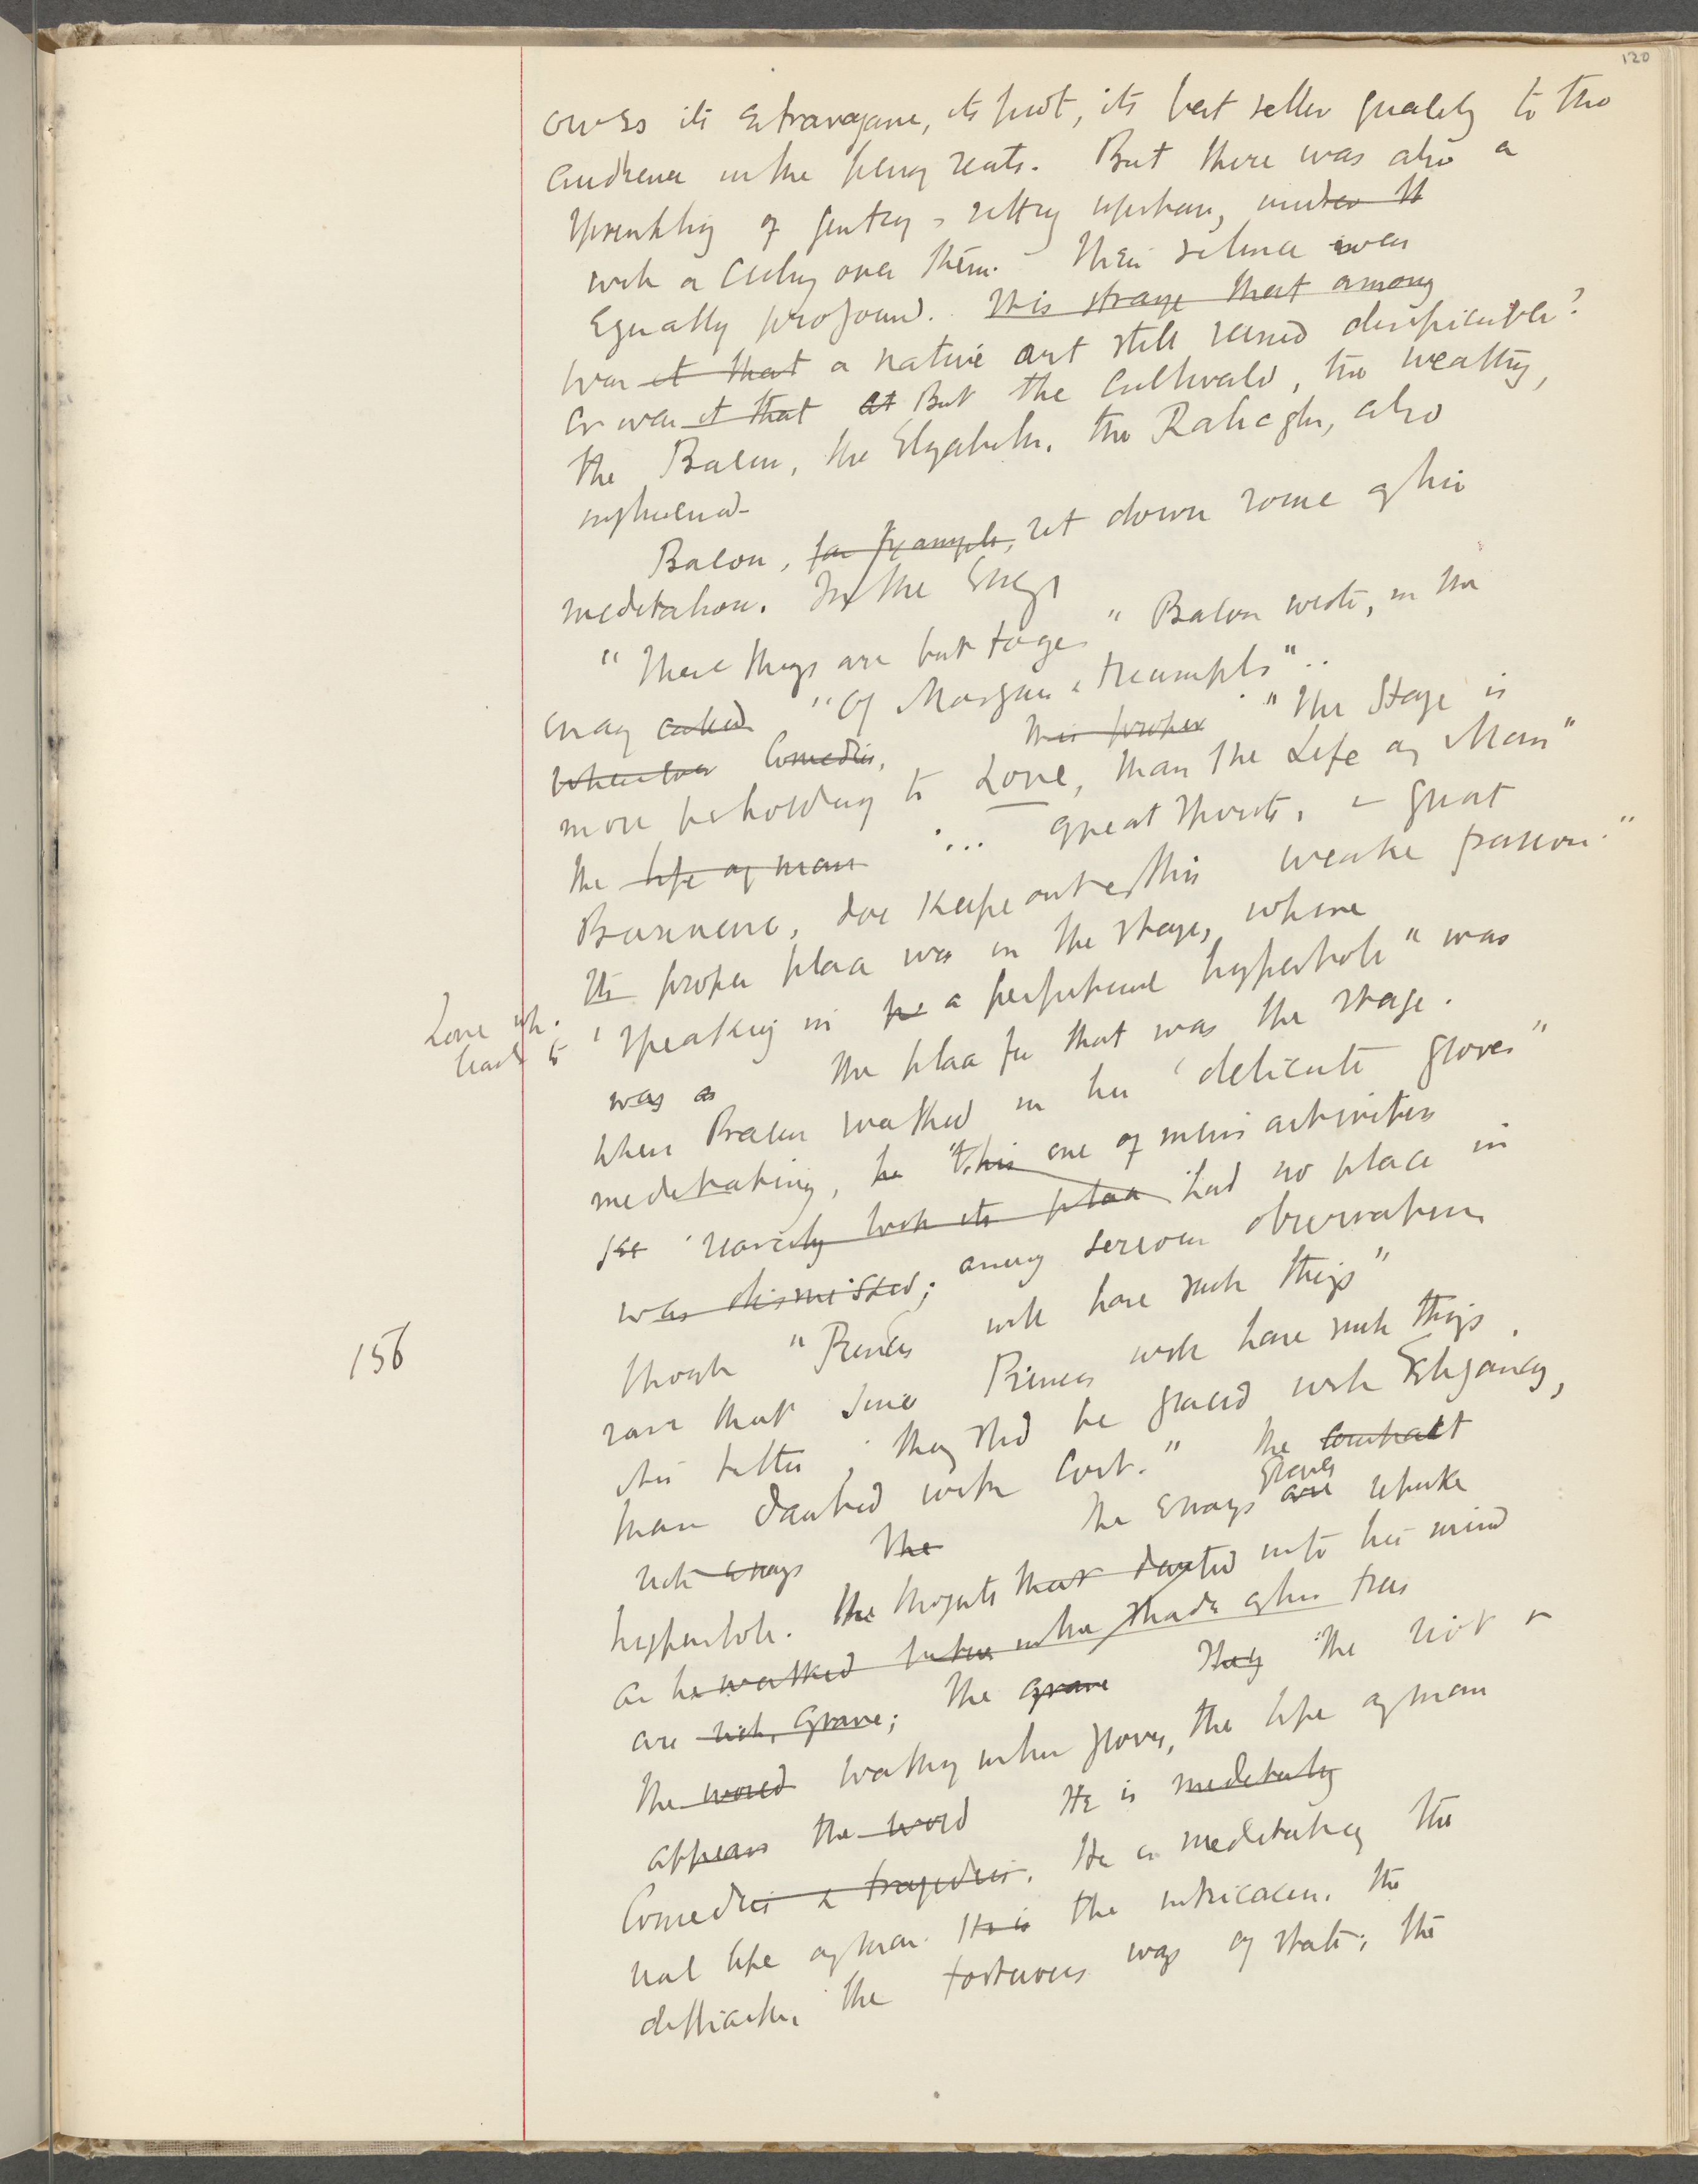 120
owes its extravagance, its plot, its best seller quality to the
audience in the penny seats. But there was also a
sprinkling of gentry, sitting upstairs, under th
with a ceiling over them. Their silence was
equally profound. It is strange that among
Was it that a native art still seemed despicable?
or was it that at But the cultivated, the wealthy,
the Bacons, the Elizabeths, the Raleghs, also
influenced.
Bacon, for example, set down some of his
meditations. In the Essays
"These things are but toyes" Bacon wrote, in the
essay called "Of Masques & triumphs"..
Whenever Comedies, this proper "The Stage is
more beholding to Love, than the Life of Man"
the life of man ... great spirits, & great
Businesse, doe keepe out this weake passion."
Its proper place was in the stage, where
Love wh.
leads to
'speaking in pe a perpetual hyperbole" was
was a the place for that was the stage.
When Bacon walked in his 'delicate groves"
meditating, he this one of men's activities
had no place in
was dismissed; among serious observations
though "Princes will have such things"
save that since Princes will have such things,
tis better, they shd be graced with Elegancy,
156
than daubed with cost." the contrast
such essays The The essays groves are rebuke
hyperbole. The thoughts that darted into his mind
as he walked in the shade of his trees
are rich, grave; the grave They The rich &
the word walking in his groves, the life of man
appears the word He is meditating
Comedies & tragedies. He is meditating the
real life of man. It is the intricacies, the
difficulties, the tortuous ways of state; the